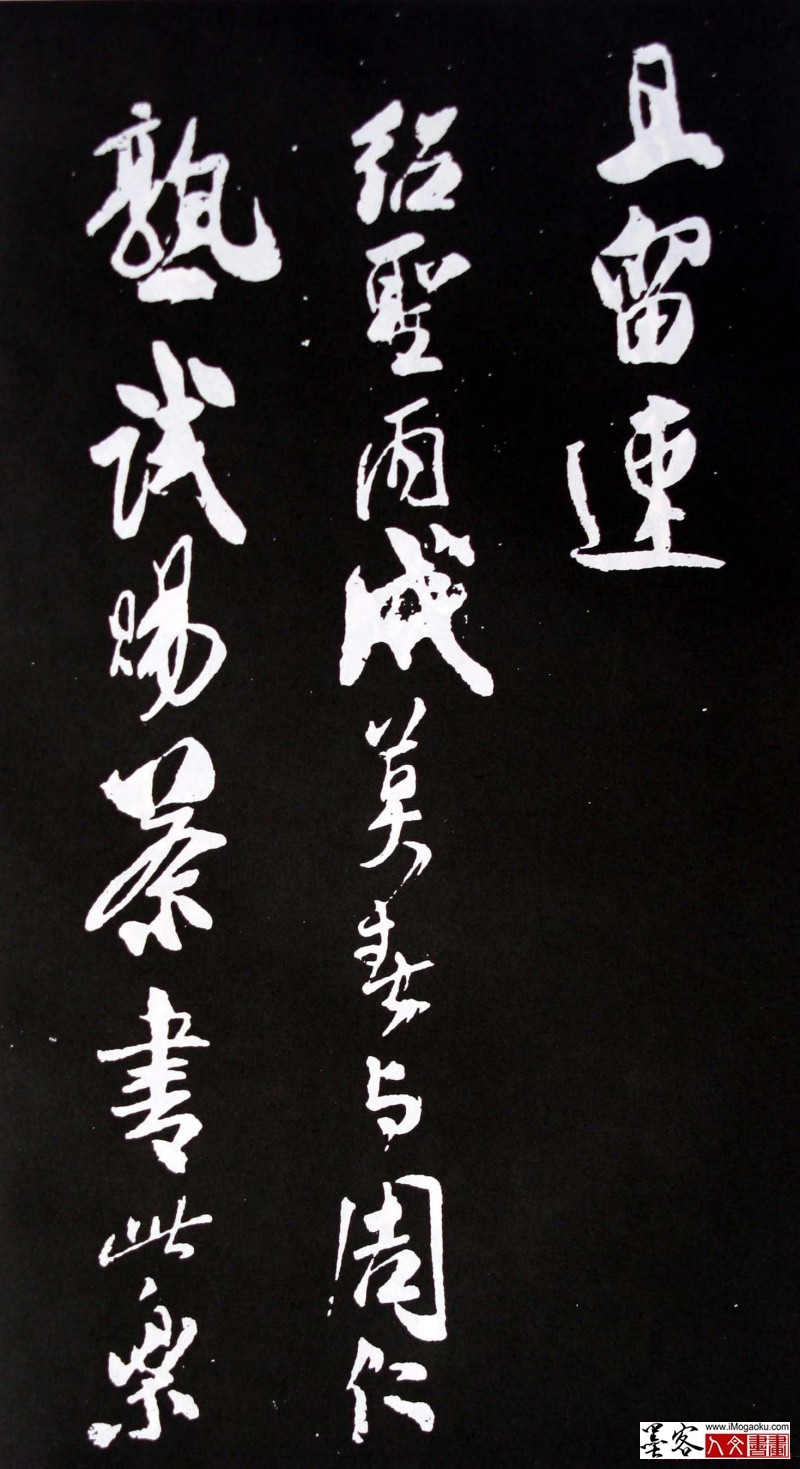 且留連
紹聖丙戌莫春与周仁
熟試賜茶書此樂
www.iMogaoku.com
墨客人文書畫